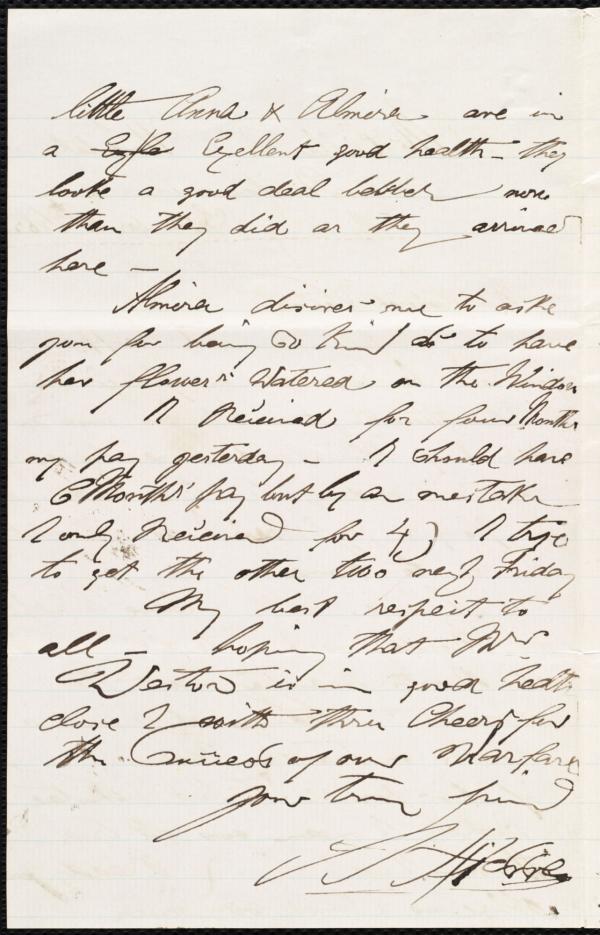 little Anna & Almira are in
a Exellent good health - they
looke a good deal bether now
than they did as they arrived
here -
Almira disires me to aske
you for being so kind to have
her flowers watered on the Window
I Received for four Months
my pay yesterday - I should have
6 Months' pay but by an mestake
I only Received for 4, I trye
to get the other two next Friday
My best respect to
all - hoping that Mrs
Weston is in good health
close I with three Cheers for
the Success of our Warfare
your true friend